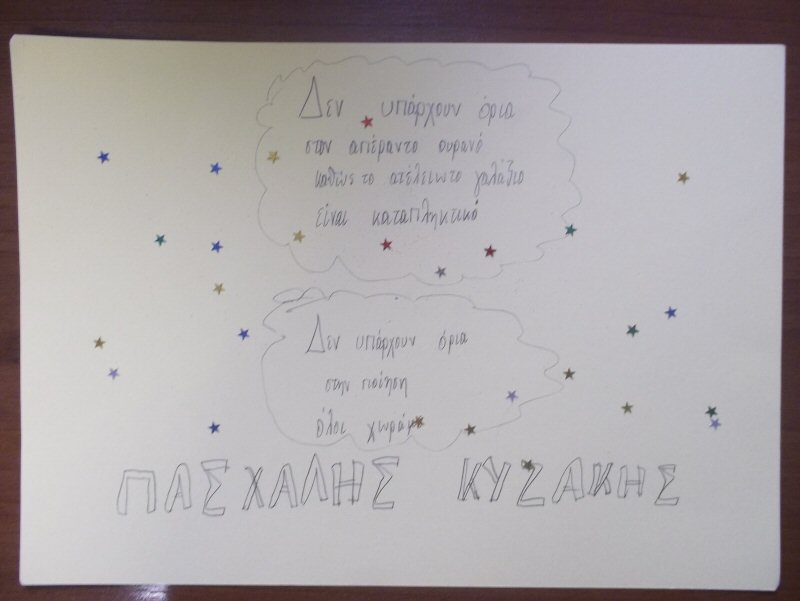 Δεν υπάρχουν όρια
στον απέραντο ουρανό
καθώς το ατέλειωτο γαλάζιο
είναι καταπληκτικό
Δεν υπάρχουν όρια
στην ποίηση
όλοι χωράμε
ΠΑΣΧΑΛΗΣ ΚΥΖΑΚΗΣ